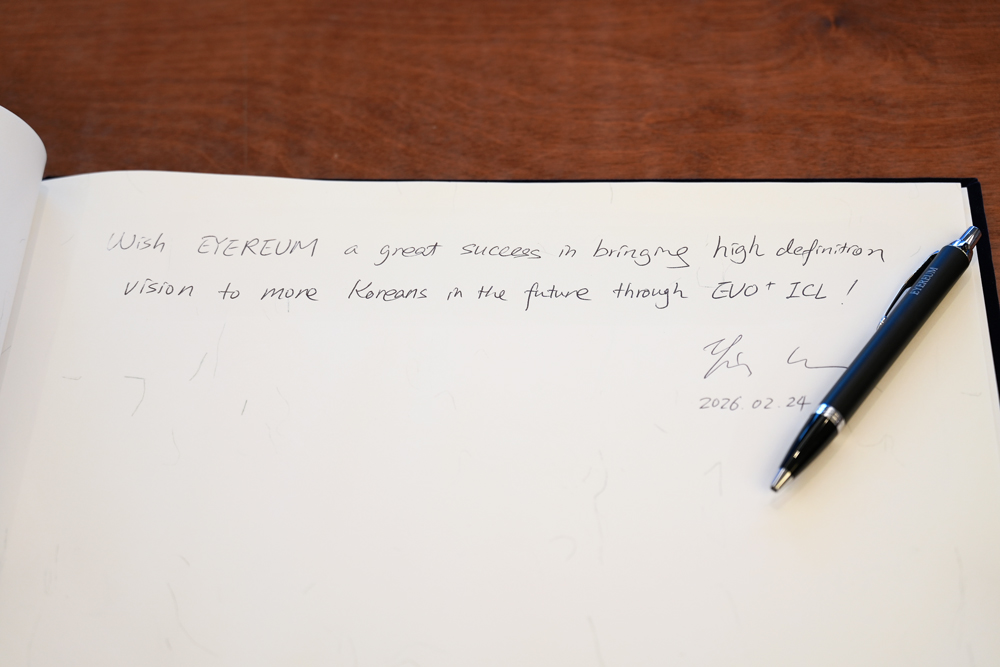 Wish EYEREUM a great success in bringing high definition
vision to more Koreans in the future through EVO+ ICL !
2026.02.24
EYEREUM